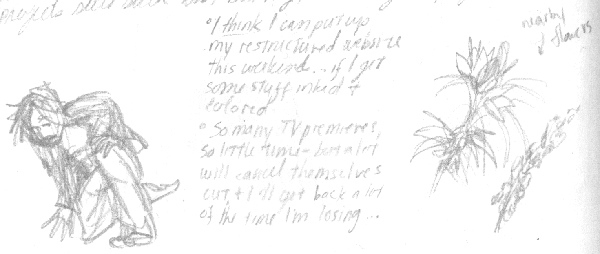 projects
nearby
& flowers
°I think I can put up
my restructured website
this weekend... if I get
some stuff inked +
colored
° So many TV premieres,
so little time - but a lot
will cancel themselves
out + I'll get back a lot
of the time I'm losing...